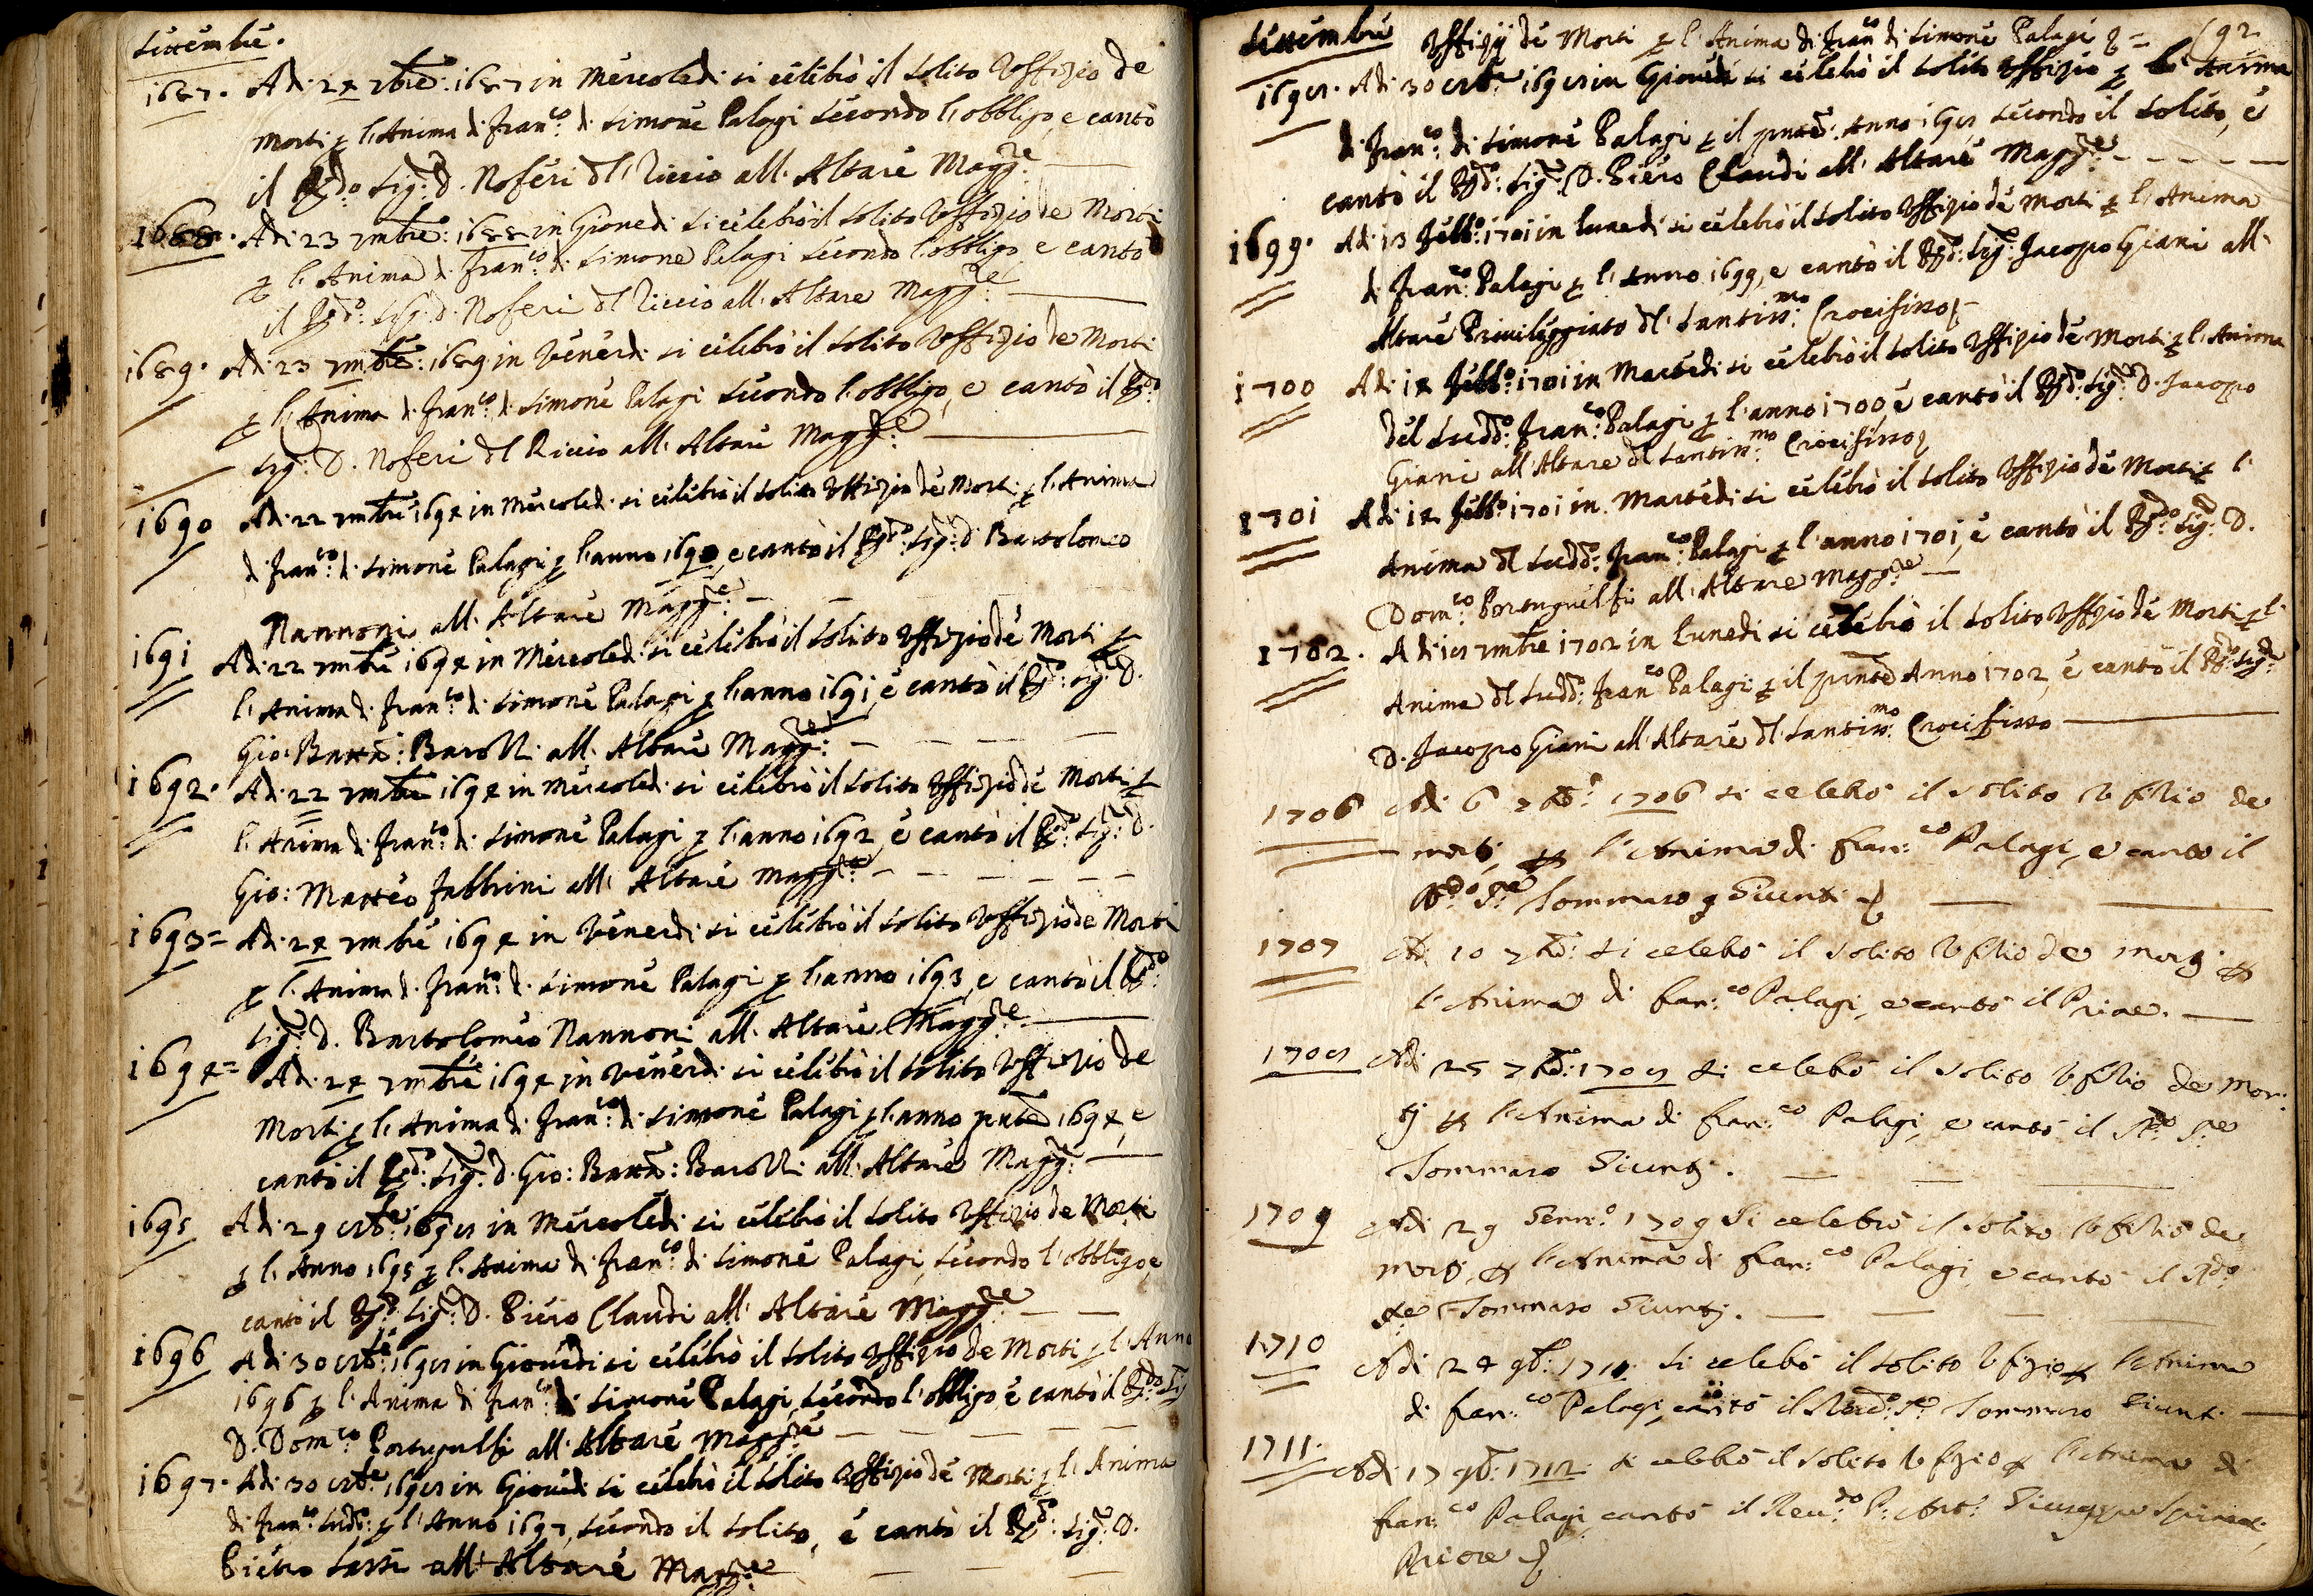 Settembre.
1687. Adi 24 7bre: 1687 in Mercoledi si celebrò il solito Uffizio de
Morti p l'Anima di Franco: di Simone Palagi secondo l'obbligo, e cantò
il Rdo Sig: D. Noferi dl Riccio all' Altare Magg:re
1688. Adi 23 7mbre: 1688 in Giovedi si celebrò il solito Uffizio de Morti
p l'Anima di Franco: di Simone Palagi secondo l'obbligo e cantò
il Rdo: Sig: D. Noferi dl Riccio all' Altare Magg:re
1689. Adi 23 7mbre: 1689 in Venerdi si celebrò il solito Uffizio de Morti
p l'Anima di Franco: di Simone Palagi secondo l'obbligo, e cantò il Rdo:
Sig: D. Noferi dl Riccio all' Altare Magg:re
1690 Adi 22 7mbre 1694 in Mercoledi si celebrò il solito Uffizio de Morti p l'Anima
di Franco: di Simone Palagi p l'anno 1690, e cantò il Rdo: Sig: D. Bartolomeo
Nannoni all' Altare Magg:re
1691 Adi 22 7mbre 1694 in Mercoledi si celebrò il solito Uffizio de Morti p
l'Anima di Franco: di Simone Palagi p l'anno 1691, e cantò il Rdo: Sig:re D.
Gio: Batta: all' Altare Magg:re
1692. Adi 22 7mbre 1694 in Mercoledi si celebrò il solito Uffizio de Morti p
l'Anima di Franco: di Simone Palagi p l'anno 1692, e cantò il Rdo: Sig:re D.
Gio: Matteo Fabbrini all' Altare Magg:re
1693= Adi 24 7mbre 1694 in Venerdi si celebrò il solito Uffizio de Morti
p l'Anima di Franco: di Simone Palagi p l'anno 1693, e cantò il Rdo:
Sig: D. Bartolomeo Nannoni all' Altare Magg:re
1694= Adi 24 7mbre 1694 in Venerdi si celebrò il solito Uffizio de
Morti p l'Anima di Franco: di Simone Palagi p l'anno pnte 1694, e
cantò il Rdo: Sig: D. Gio: Batta: all' Altare Magg:
1695 Adi 29 8bre: 1698 in Mercoledi si celebrò il solito Uffizio de Morti
p l'Anno 1695 p l'Anima di Franco: di Simone Palagi, secondo l'obbligo, e
cantò il Rdo: Sig: D. Piero Claudi all' Altare Magg:re
1696 Adi 30 8bre: 1698 in Giovedi si celebrò il solito Uffizio de Morti p l'Anno
1696 p l'Anima di Franco: di Simone Palagi, secondo l'obbligo e cantò il Rdo: Sig
D. Domco: Portigulfi all' Altare Magg:re
1697. Adi 30 8bre: 1698 in Giovedi si celebrò il solito Uffizio de Morti p l'Anima
di Franco: Sudo: p l'Anno 1697, secondo il solito, e cantò il Rdo: Sig:re D.
Pietro Sassi all' Altare Magg:re
Settembre Uffizij de Morti p l'Anima di Franco di Simone Palagi 192
1698. Adi 30 8bre 1698 in Giovedi si celebrò il solito Uffizio p l' Anima
di Franco: di Simone Palagi p il pnte Anno 1698 secondo il solito, e
cantò il Rdo: Sig: D. Piero Claudi all' Altare Magg:re
1699. Adi 13 Febbo: 1701 in Lunedi si celebrò il solito Uffizio de Morti p l'Anima
di Franco: Palagi p l'Anno 1699, e cantò il Rdo: Sig: Jacopo Giani all'
Altare Privileggiato dl Santissmo: Crocifisso
1700 Adi 14 Febbo: 1701 in Martedi si celebrò il solito Uffizio de Morti p l'Anima
del Suddo: Franco: Palagi p l'anno 1700 e cantò il Rdo: Sig: D. Jacopo
Giani all' Altare dl Santissmo: Crocifisso
1701 Adi 14 Febbo: 1701 in Martedi si celebrò il solito Uffizio de Morti p l'
Anima dl Suddo: Franco: Palagi p l'anno 1701, e cantò il Rdo: Sig:re D.
Domco: Portuguelfi all' Altare Magg:re
1702. Adi 18 7mbre 1702 in Lunedi si celebrò il solito Uffizio de Morti p l'
Anima dl Suddo: Franco Palagi p il pnte Anno 1702, e cantò il Rdo: Sig:re
D. Jacopo Giani all' Altare dl Santissmo: Crocifisso
1706 Adi 6 7bre: 1706 si celebrò il solito Ufizio de
morti, p l'Anima di Fran:co Palagi, e cantò il
Rdo: Sre Tommaso Giunti
1707 Adi 10 7bre: si celebrò il solito Ufizio de morti p
l'Anima di Fran:co Palagi, e cantò il Priore.
1708 Adi 25 7bre: 1708 si celebrò il solito Ufizio de Mor:
tj p l'Anima di Fran:co Palagi, e cantò il Rdo Sre
Tommaso Giuntj.
1709 Adi 29 Genn:o 1709 si celebrò il solito Ufizio de
mortj, p l'Anima di Fran:co Palagi, e cantò il Rdo
Sre Tommaso Giuntj.
1710 Adi 24 9b: 1711 si celebrò il solito Ufizio p l'Anima
di Fran:co Palagi, cantò il Revdo: Sre Tommaso Giunti
1711. Adi 17 9b: 1712 si celebrò il solito Ufizio p l'Anima di
Fran:co Palagi, cantò il Reu:do P: Giuseppe
Priore